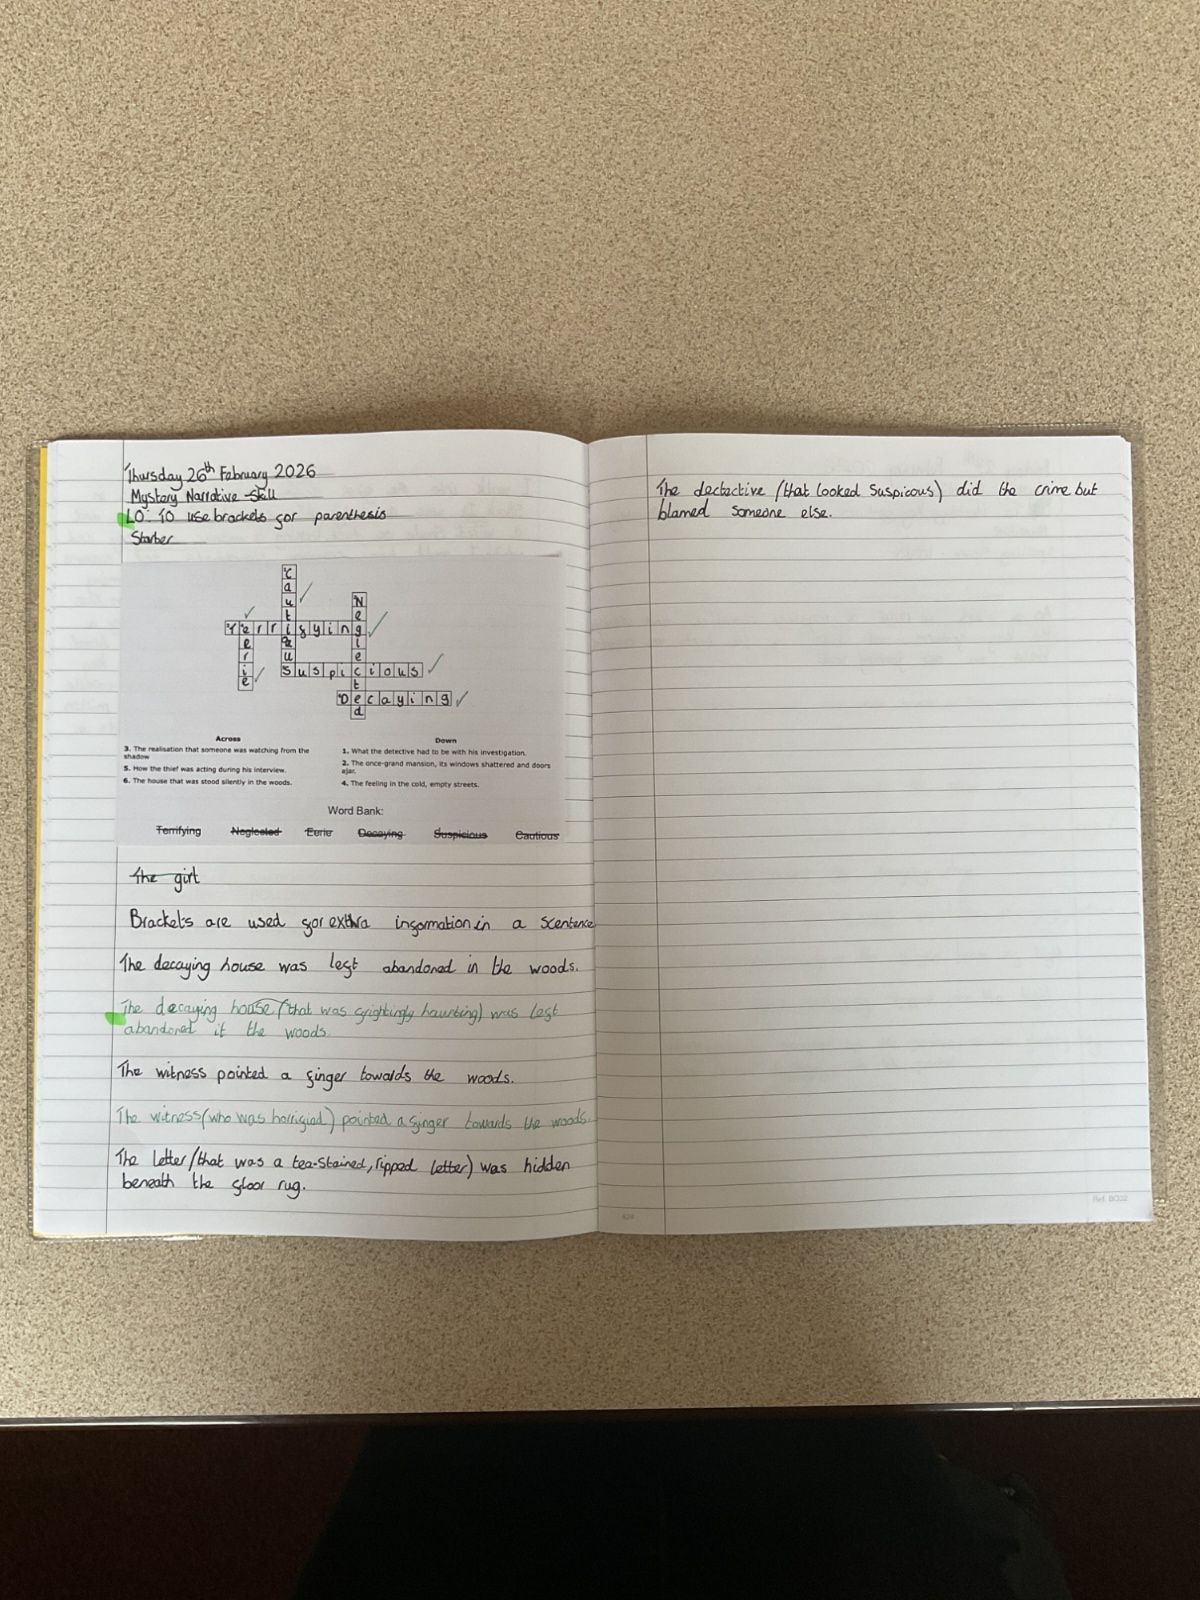 Thursday 26th Febuary 2026
Mystery Narrative Skill
LO: To use brackets for parenthesis
Starter
Cautious
Neglected
Terrifying
Eerie
Suspicious
Decaying
Across
3. The realisation that someone was watching from the
shadow
5. How the thief was acting during his interview.
6. The house that was stood silently in the woods.
Down
1. What the detective had to be with his investigation.
2. The once-grand mansion, its windows shattered and doors
ajar.
4. The feeling in the cold, empty streets.
Word Bank:
Terrifying Neglected Eerie Decaying Suspicious Cautious
The girl
Brackets are used for extra information in a scentence
The decaying house was left abandoned in the woods.
The decaying house (that was frightingly haunting) was left
abandoned it the woods.
The witness pointed a finger towards the woods.
The witness (who was horrifiad) pointed a finger towards the woods.
The letter (that was a tea-stained, ripped letter) was hidden
beneath the floor rug.
The dectective (that looked suspicous) did the crime but
blamed someone else.
Ref: BO32